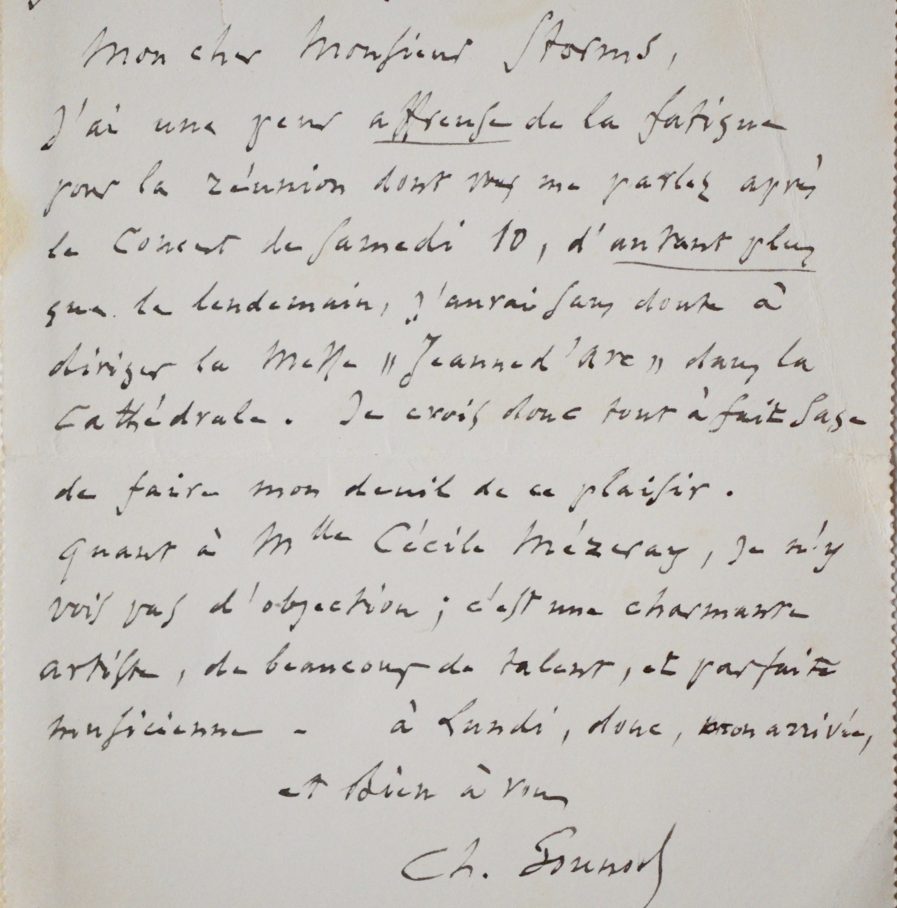 Mon cher Monsieur Storms,
J'ai une peur affreuse de la fatigue
pour la réunion dont vous me parlez après
le Concert de Samedi 10, d'autant plus
que le lendemain, j'aurai sans doute à
diriger la Messe „Jeanne d'Arc” dans la
Cathédrale. Je crois donc tout à fait sage
de faire mon deuil de ce plaisir.
Quant à Mlle Cécile Mézeray, je n'y
vois pas d'objection ; c'est une charmante
artiste, de beaucoup de talent, et parfaite
musicienne - à Lundi, donc, mon arrivée,
et Bien à vous
Ch. Gounod